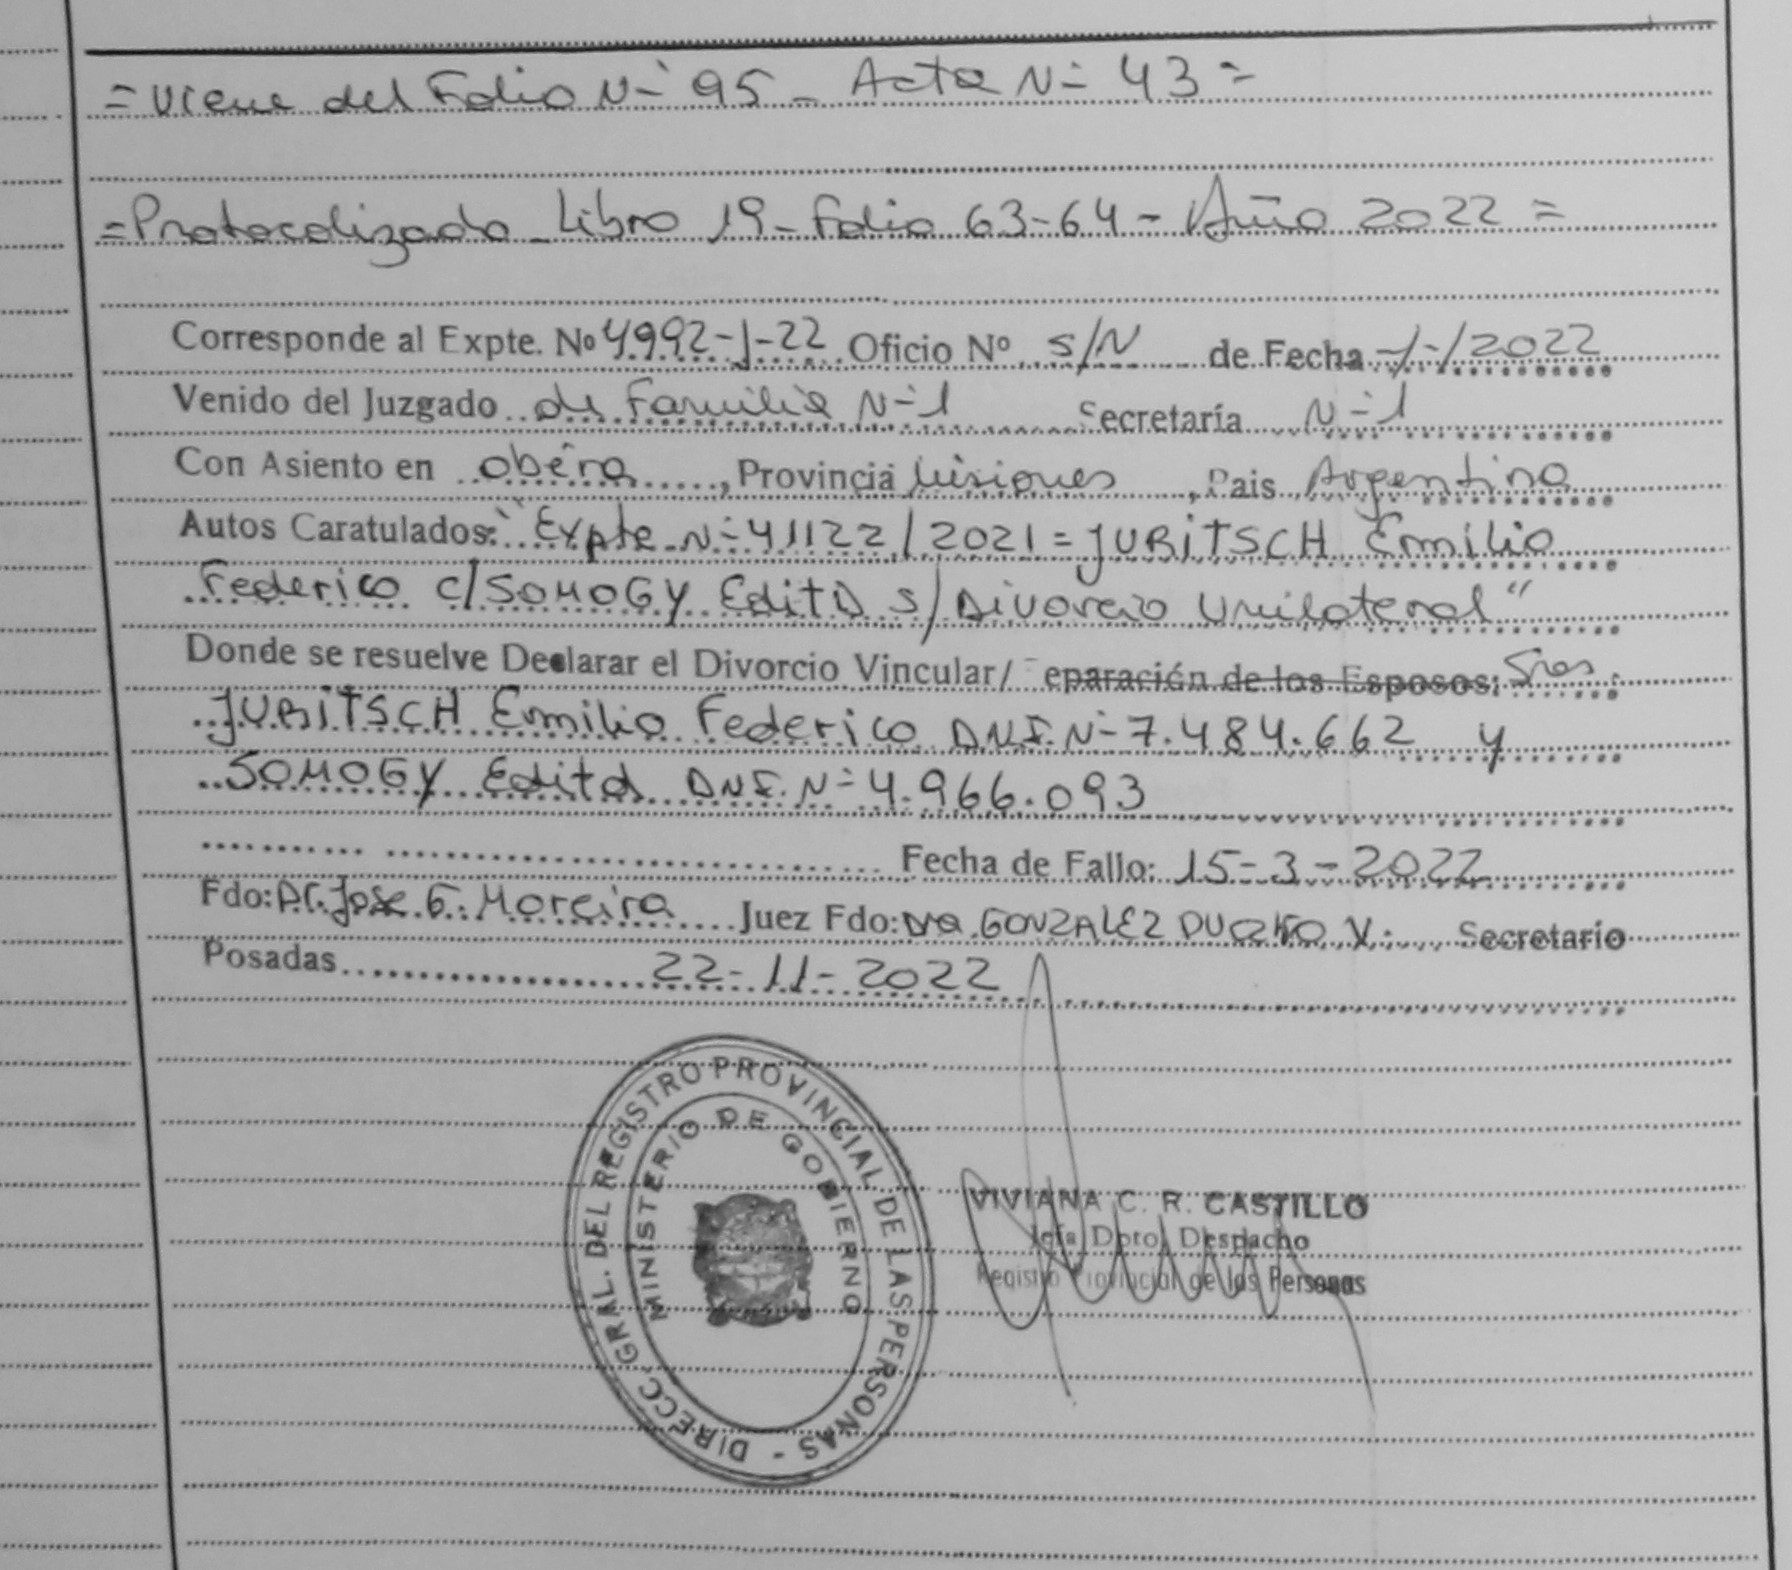 = Viene del Folio N- 95 - Acta N- 43 =
= Protocolizado - Libro 19 - Folio 63-64 - Año 2022 =
Corresponde al Expte. Nº 4992-J-22 Oficio Nº s/N de Fecha -/-/2022
Venido del Juzgado de Familia N-1 Secretaría N-1
Con Asiento en Oberá, Provincia Misiones, Pais Argentina
Autos Caratulados: "Expte N- 41122/2021 = JURITSCH Emilio
Federico c/ SOMOGY Edita s/ Divorcio Unilateral"
Donde se resuelve Declarar el Divorcio Vincular/ eparación de los Esposos: Sres.
JURITSCH Emilio Federico D.N.I. N- 7.484.662 y
SOMOGY Edita DNI. N- 4.966.093
Fecha de Fallo: 15-3-2022
Fdo: Dr. Jose G. Moreira Juez Fdo: Dra. GONZALEZ V. Secretario
Posadas 22-11-2022
DIRECC. GRAL. DEL REGISTRO PROVINCIAL DE LAS PERSONAS -
MINISTERIO DE GOBIERNO
VIVIANA C. R. CASTILLO
Jefa Dpto. Despacho
Registro Provincial de las Personas